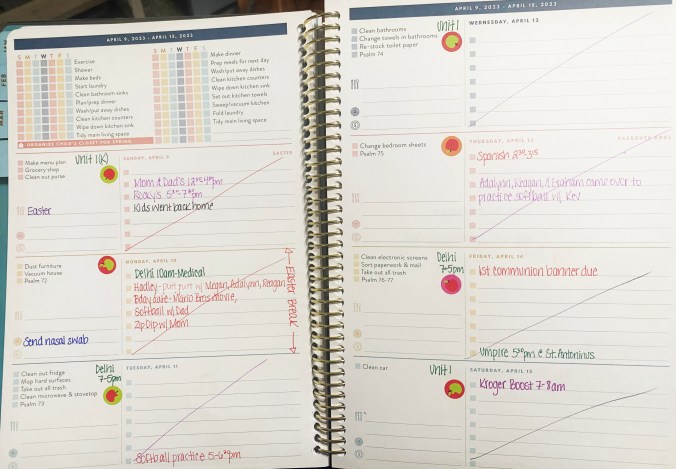 APRIL 9, 2023 - APRIL 15, 2023
S M T W T F S
Exercise
Shower
Make beds
Start laundry
Clean bathroom sinks
Plan/prep dinner
Wash/put away dishes
Clean kitchen counters
Wipe down kitchen sink
Tidy main living space
S M T W T F S
Make dinner
Prep meals for next day
Wash/put away dishes
Clean kitchen counters
Wipe down kitchen sink
Set out kitchen towels
Sweep/vacuum kitchen
Fold laundry
Tidy main living space
ORGANIZE CHILD'S CLOSET FOR SPRING
Make menu plan
Grocery shop
Clean out purse
Unit 1(K)
Easter
SUNDAY, APRIL 9
EASTER
Mom & Dad's
Kids went back home
Dust furniture
Vacuum house
Psalm 72
Send nasal swab
MONDAY, APRIL 10
Delhi 10am-Medical
Hadley- putt putt w/ Megan, Adalynn, Reagan
Bday date- Mario Bros Movie,
Softball w/ Dad
Zip Dip w/ Mom
Easter Break
Clean out fridge
Mop hard surfaces
Take out all trash
Clean microwave & stovetop
Psalm 73
Delhi
7-5pm
TUESDAY, APRIL 11
Softball practice 5-6:30pm
APRIL 9, 2023 - APRIL 15, 2023
Clean bathrooms
Change towels in bathrooms
Re-stock toilet paper
Psalm 74
Unit 1
WEDNESDAY, APRIL 12
Change bedroom sheets
Psalm 75
THURSDAY, APRIL 13
PASSOVER ENDS
Spanish 2:30-3:15
Adalynn, Reagan, & Graham came over to
practice softball w/ Kev
Clean electronic screens
Sort paperwork & mail
Take out all trash
Psalm 76-77
Delhi
7-5pm
FRIDAY, APRIL 14
1st communion banner due
Umpire 5:30pm @ St. Antoninus
Clean car
Unit 1
SATURDAY, APRIL 15
Kroger Boost 7-8am